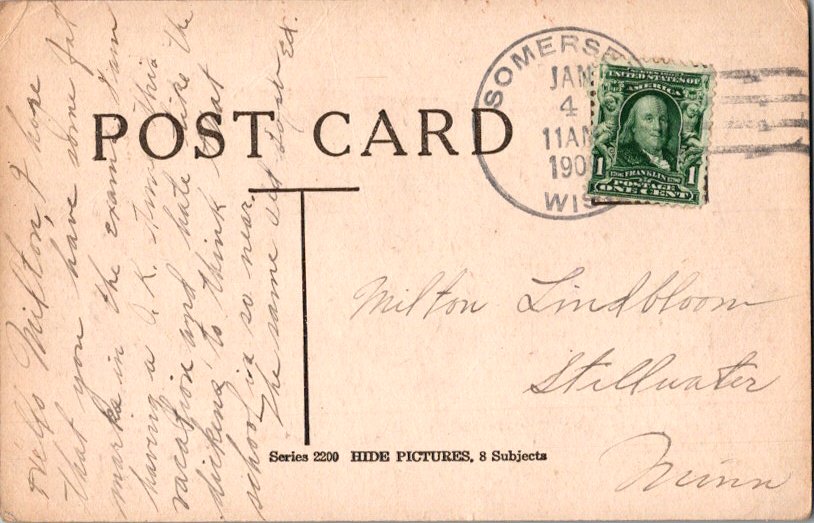 POST CARD
SOMERSE
JAN
4
11 AM
190
WIS
UNITED STATES OF
AMERICA
1 1
1706 FRANKLIN 1790
POSTAGE
ONE CENT
Hello Milton, I hope
that you have some fat
marks in the exams I am
having a O.K. time this
vacation and hate like the
dickens to think that
school is so near.
The same old Ed.
Milton Lindbloom
Stillwater
Minn
Series 2200 HIDE PICTURES, 8 Subjects